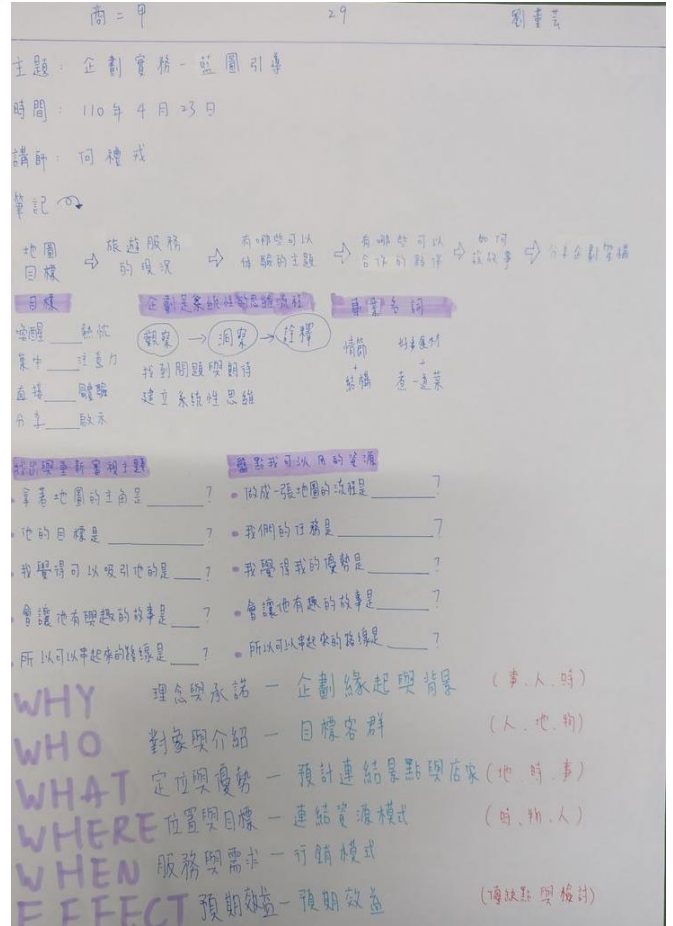 商二甲 29 劉
主題：企劃實務-藍圖引導
時間：110年4月23日
講師：何禮戎
筆記
地圖目標 ⇨ 旅遊服務的現況 ⇨ 有哪些可以体驗的主題 ⇨ 有哪些可以合作的夥伴 ⇨ 如何說故事 ⇨ 分享企劃架構
目標
喚醒____熱忱
集中____注意力
直接____體驗
分享____啟示
企劃是系統性的思維流程
觀察 → 洞察 → 詮釋
找到問題與期待
建立系統性思維
專業名詞
情節 + 結構
好食材 + 煮一道菜
重新審視主題
• 拿著地圖的主角是______?
• 他的目標是______?
• 我覺得可以吸引他的是____?
• 會讓他有興趣的故事是____?
• 所以可以串起來的路線是____?
盤點我可以用的資源
• 做成一張地圖的流程是______?
• 我們的任務是______?
• 我覺得我的優勢是______?
• 會讓他有趣的故事是______?
• 所以可以串起來的路線是____?
WHY 理念與承諾 - 企劃緣起與背景 (事、人、時)
WHO 對象與介紹 - 目標客群 (人、地、物)
WHAT 定位與優勢 - 預計連結景點與店家 (地、時、事)
WHERE 位置與目標 - 連結資源模式 (時、物、人)
WHEN 服務與需求 - 行銷模式
EFFECT 預期效益 - 預期效益 (優缺點與檢討)